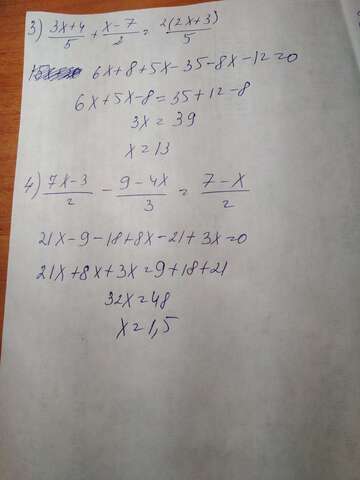 3) (3x+4)/5 + (x-7)/2 = 2(2x+3)/5
6x+8+5x-35-8x-12=0
6x+5x-8=35+12-8
3x=39
x=13
4) (7x-3)/2 - (9-4x)/3 = (7-x)/2
21x-9-18+8x-21+3x=0
21x+8x+3x=9+18+21
32x=48
x=1,5